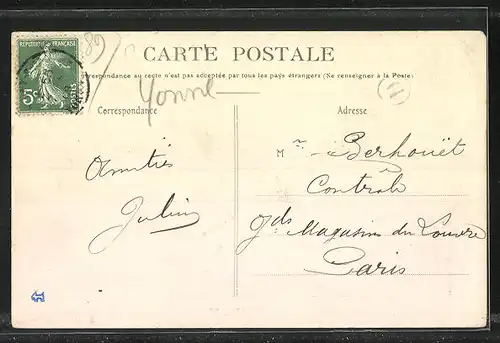 RÉPUBLIQUE FRANÇAISE
5c
POSTES
89
CARTE POSTALE
Correspondance au recto n'est pas acceptée par tous les pays étrangers (Se renseigner à la Poste)
Yonne
Correspondance
Adresse
Amitiés
Julien
Mr Berhouët
Contrôle
Gds Magasins du Louvre
Paris